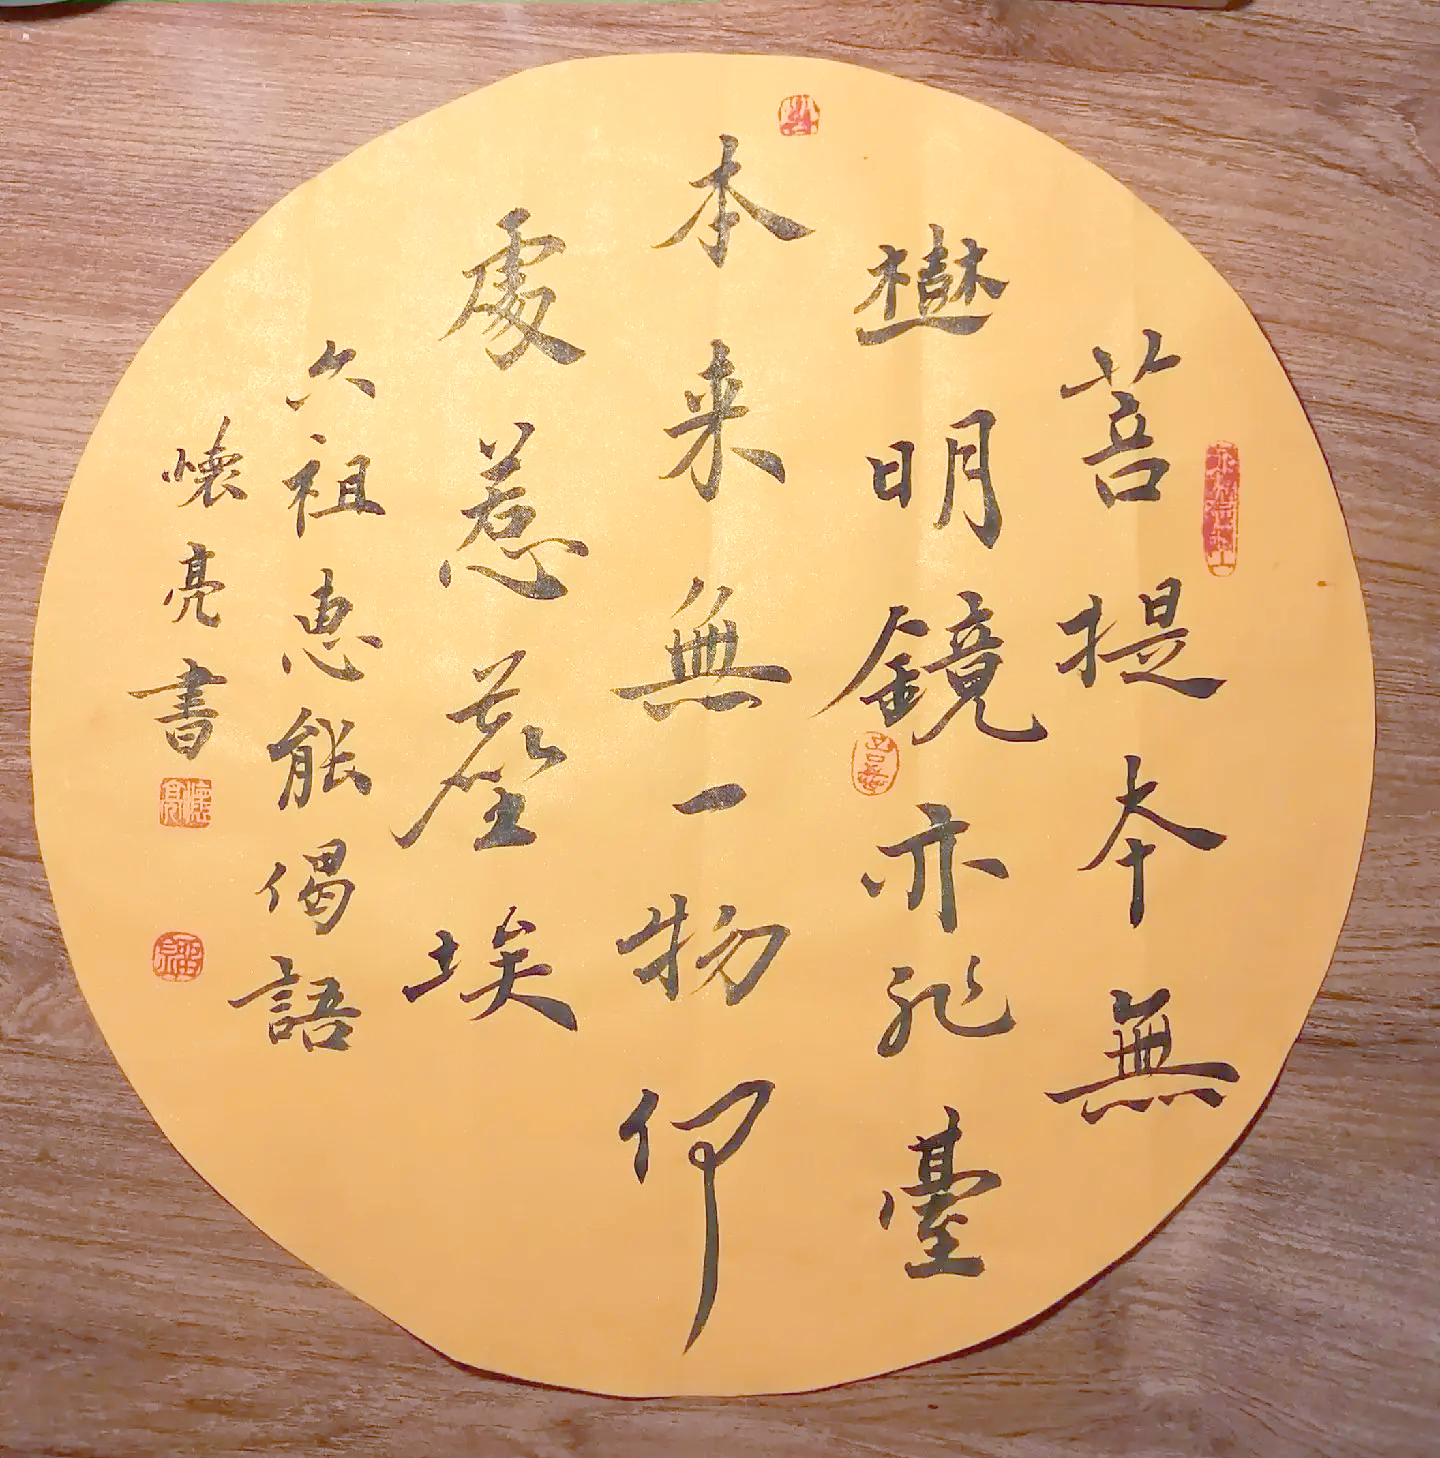 菩提本無
樹明鏡亦非臺
本来無一物何
處惹塵埃
六祖惠能偈語
懐亮書
懷亮